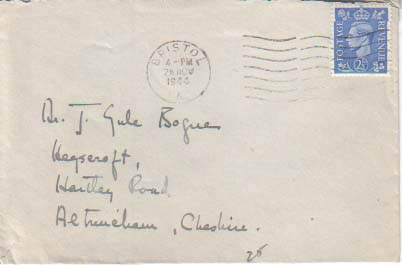 BRISTOL
4 - PM
26 NOV
1944
POSTAGE REVENUE
2½
Mr. J. Gule Bogue
Heyscroft,
Hartley Road
Altrincham, Cheshire.